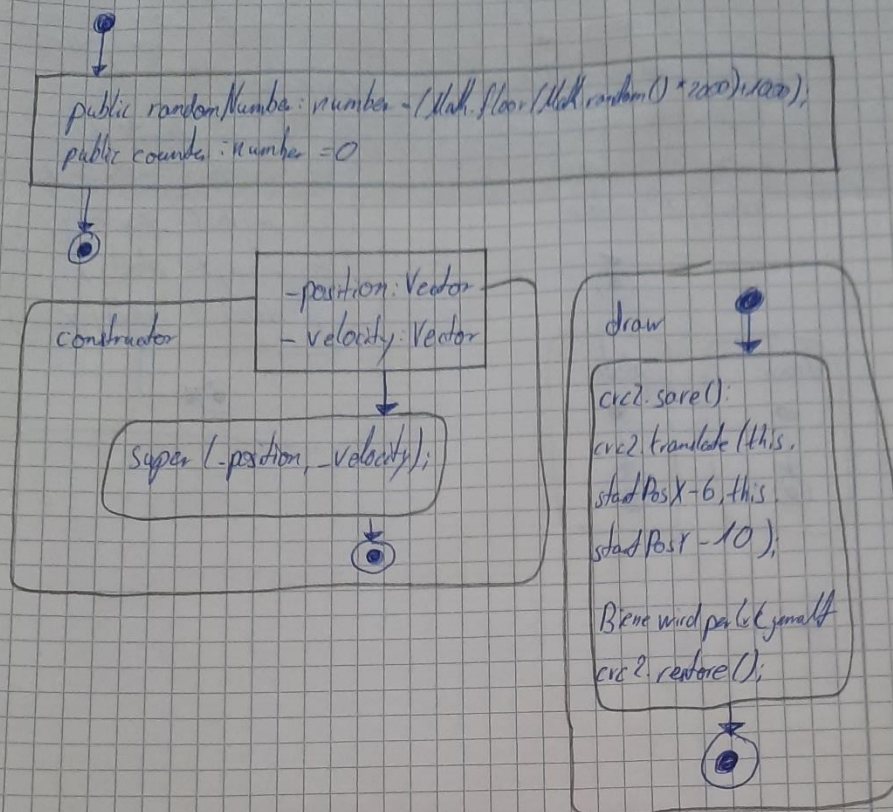 public randomNumber: number = (Math.floor(Math.random() * 2000)+1000);
public counter: number = 0
-position: Vector
- velocity: Vector
constructor
super (-position, -velocity);
draw
crc2.save();
crc2.translate(this.
startPosX-6, this
startPosY-10);
Biene wird gemalt
crc2.restore();